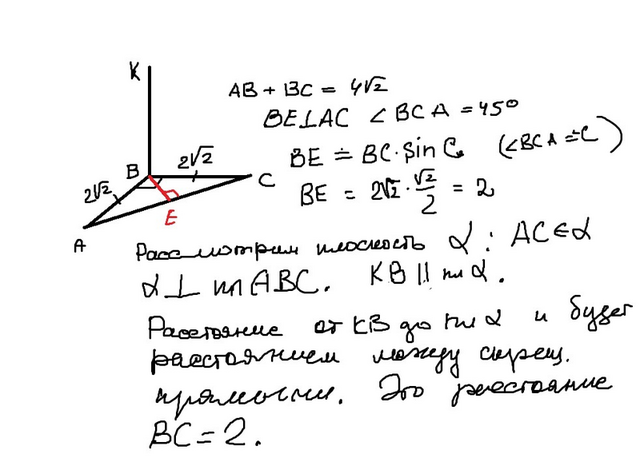 K
AB + BC = 4√2
BE⊥AC ∠BCA = 45°
BE = BC·sin C (∠BCA = C)
BE = 2√2 · √2/2 = 2
B 2√2 C
2√2
E
A
Рассмотрим плоскость α : AC∈α
α⊥ пл ABC. KB || пл α.
Расстояние от KB до пл α и будет
расстоянием между скрещ.
прямыми. Это расстояние
BC = 2.